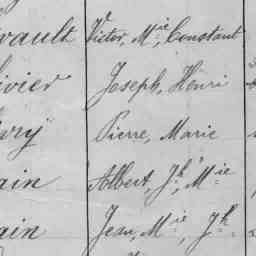 vault Victor, Mie, Constant
ivier Joseph, Henri
vry Pierre, Marie
ain Albert, Jh, Mie
ain Jean, Mie, Jh